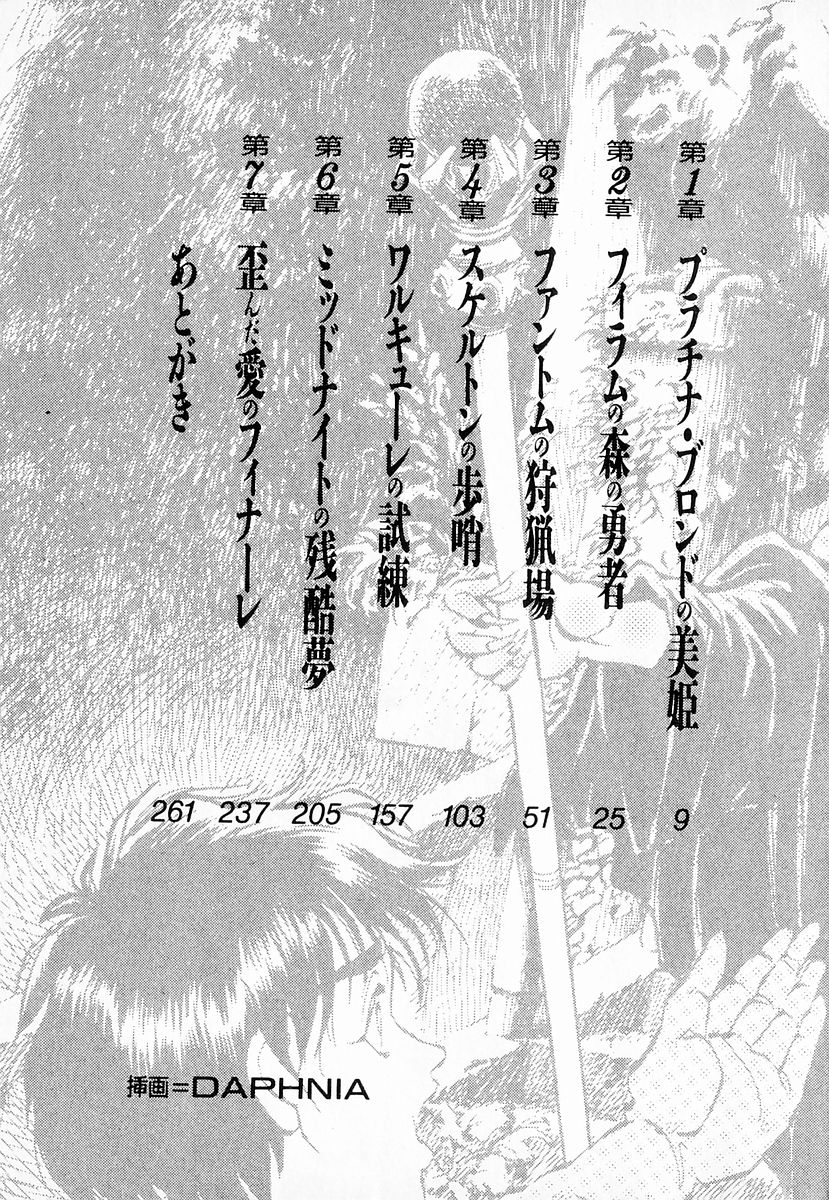 第1章 プラチナ・ブロンドの美姫 9
第2章 フィラムの森の勇者 25
第3章 ファントムの狩猟場 51
第4章 スケルトンの歩哨 103
第5章 ワルキューレの試練 157
第6章 ミッドナイトの残酷夢 205
第7章 歪んだ愛のフィナーレ 237
あとがき 261
挿画=DAPHNIA